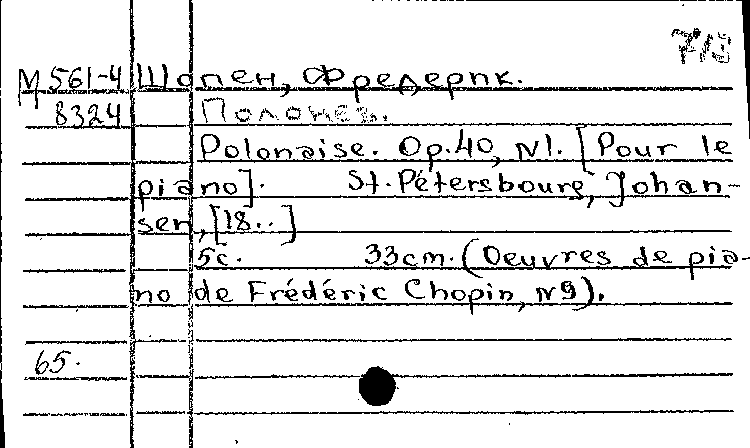 М 561-4 Шопен, Фредерик.
8324 Полонез.
Polonaise. Op.40, N1. [Pour le
piano]. St. Pétersbourg, Johan-
sen, [18..]
5с. 33cm. (Oeuvres de pia-
no de Frédéric Chopin, N9).
65.